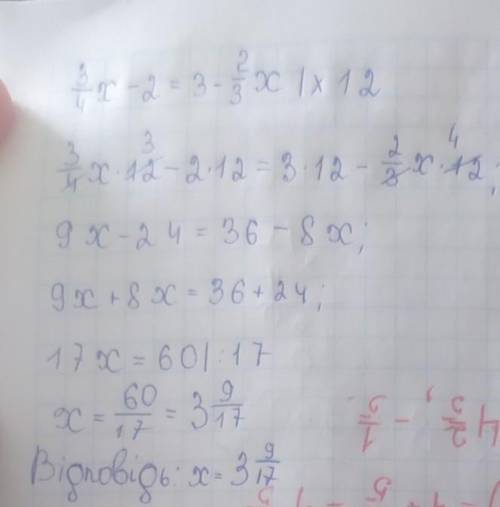 3/4 x - 2 = 3 - 2/3 x | × 12
3/4 x · 12 3 - 2 · 12 = 3 · 12 - 2/3 x · 12 4;
9x - 24 = 36 - 8x;
9x + 8x = 36 + 24;
17x = 60 | : 17
x = 60/17 = 3 9/17
Відповідь: x = 3 9/17